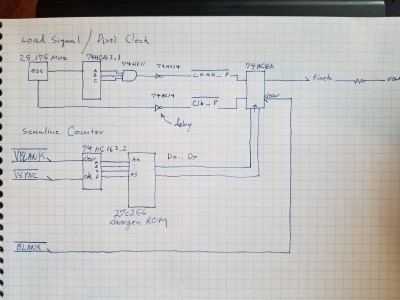 Load Signal / Pixel Clock
25.175 MHz
OSC
74HC163.1
A
B
C
74HC11
74HC14
LOAD_P
74HC14
Clk_P
delay
74HC166
clear
Pixels
VGA
Scanline Counter
74HC163.2
VBLANK
clear
VSYNC
clk
A0
A3
27c256
chargen ROM
D0..D7
BLANK